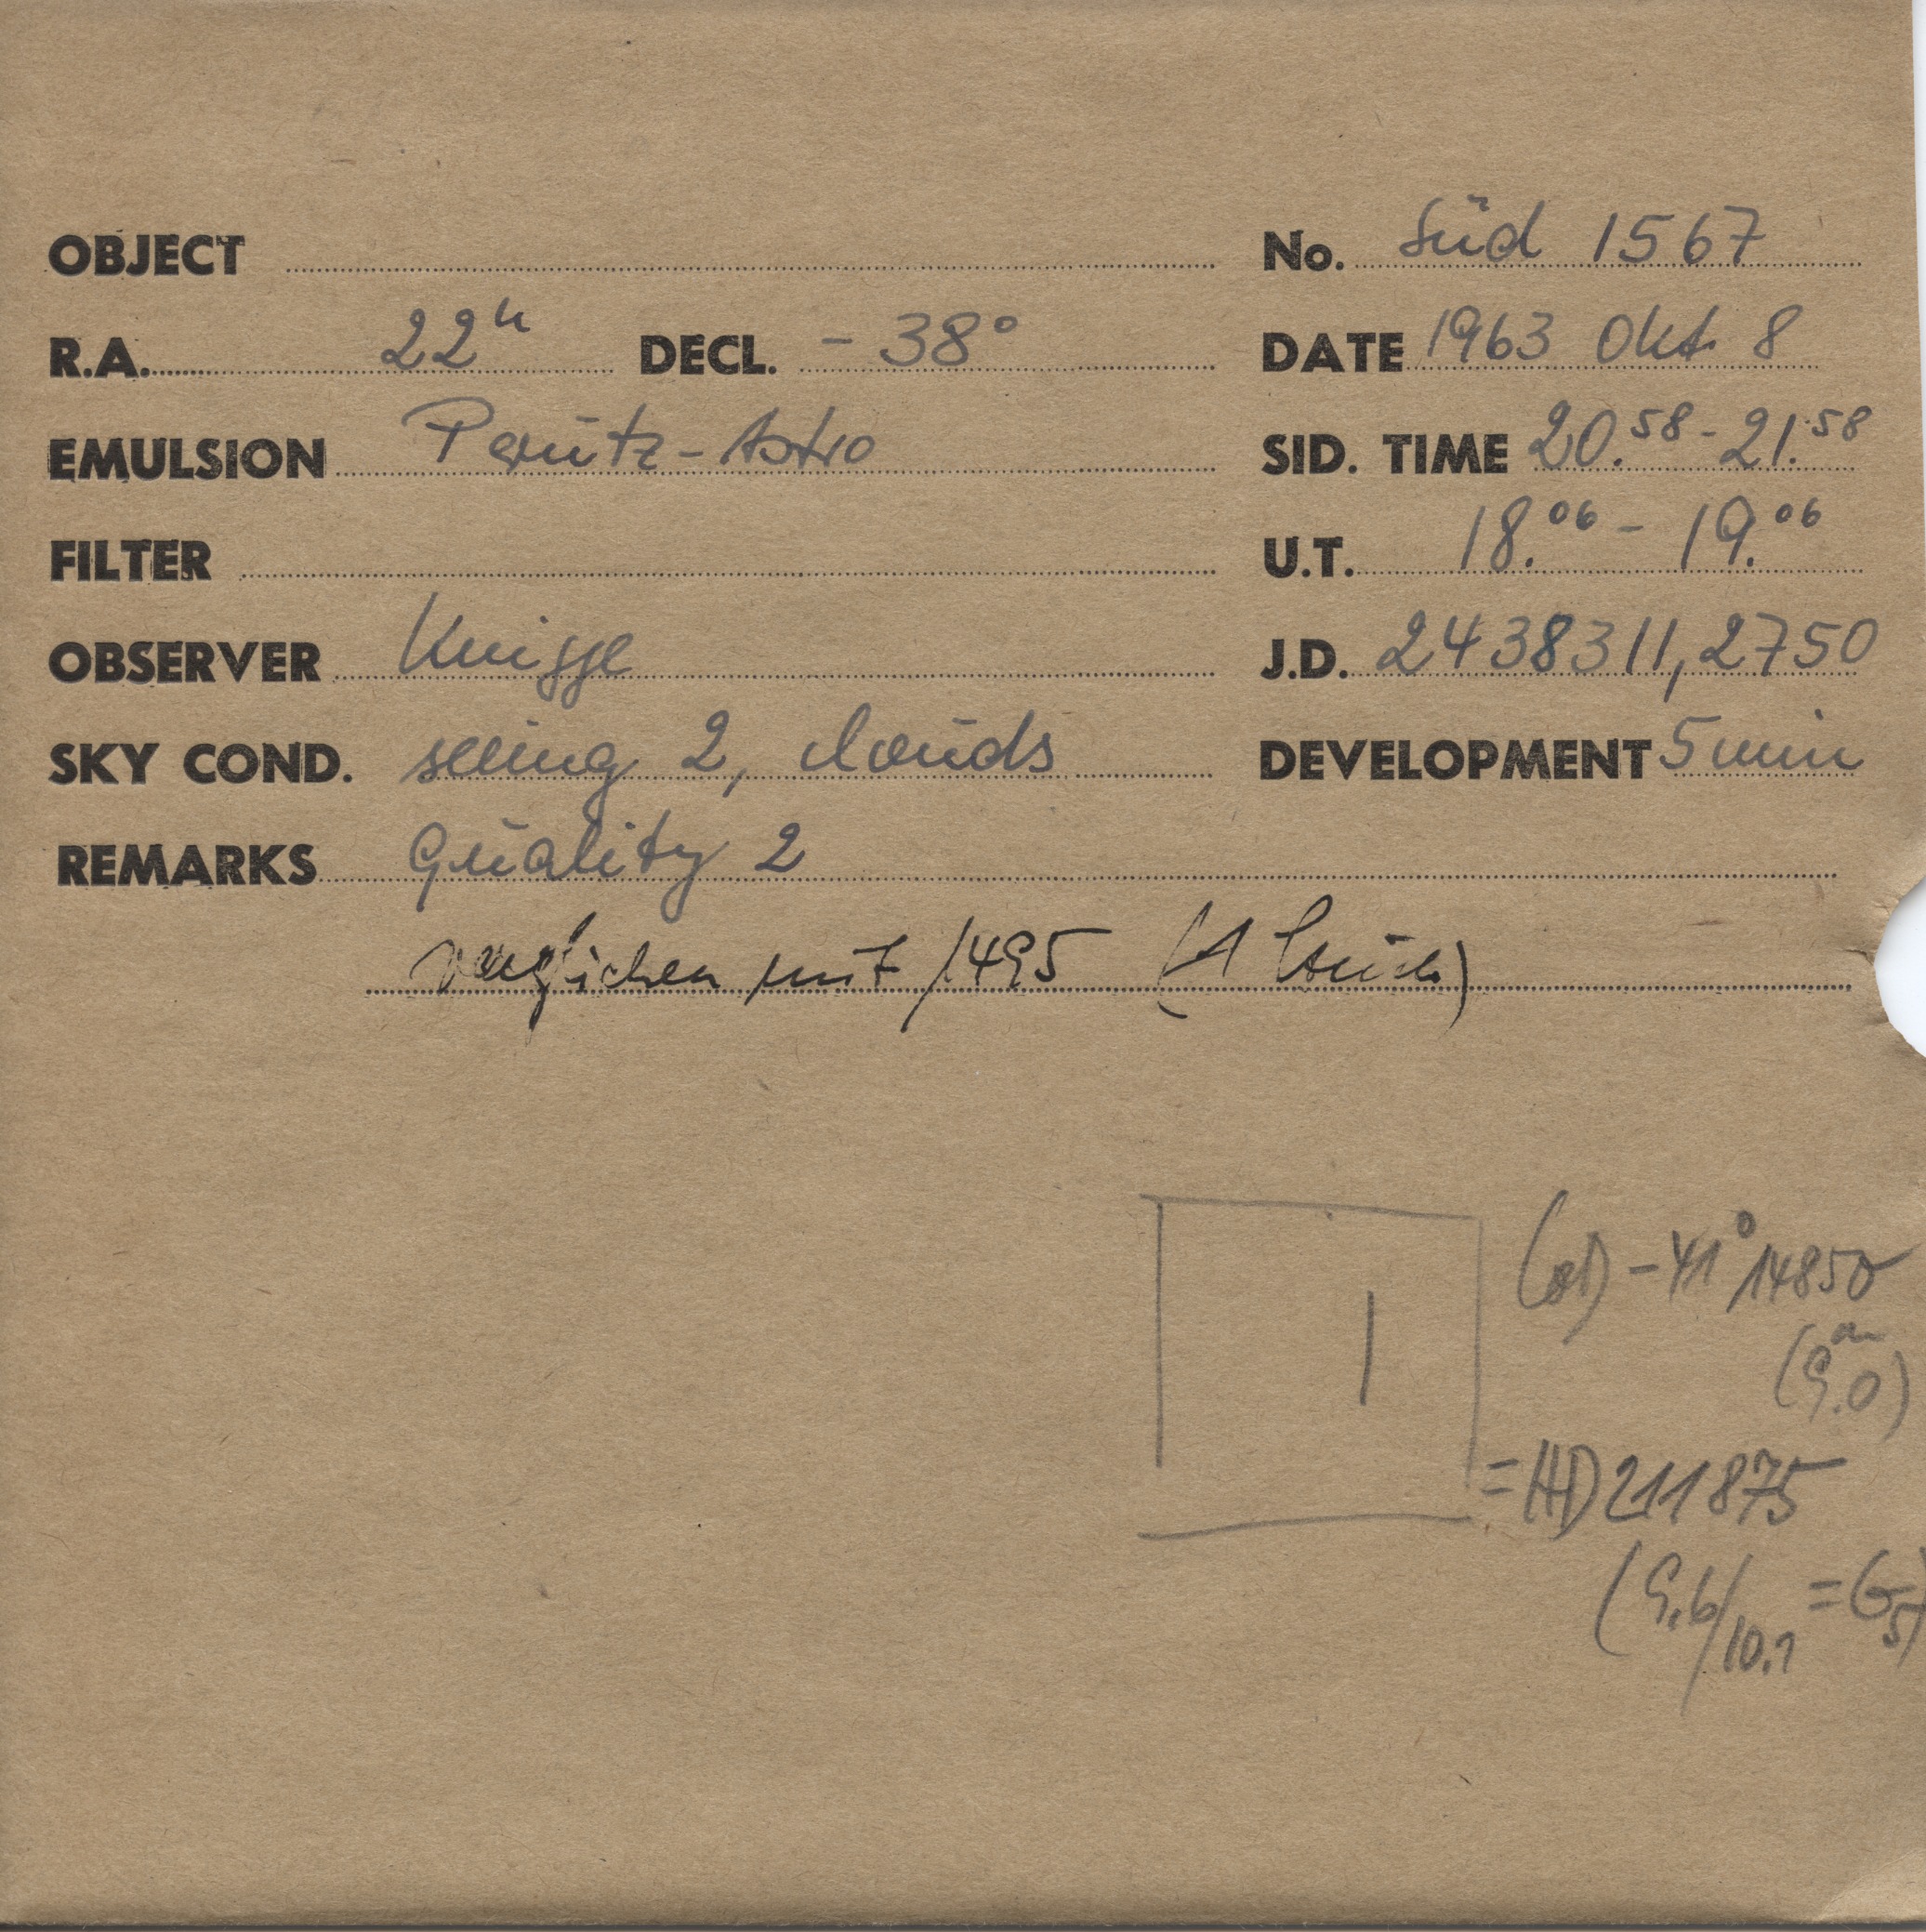 OBJECT No. Süd 1567
R.A. 22h DECL. - 38° DATE 1963 Okt. 8
EMULSION Perutz-Astro SID. TIME 20.58 - 21.58
FILTER U.T. 18.06 - 19.06
OBSERVER Knigge J.D. 2438311,2750
SKY COND. seeing 2, clouds DEVELOPMENT 5 min
REMARKS Quality 2
verglichen mit 1495 (1
-41° 14850
(9.m0)
= HD 211875
(9.6/10.1 = G5)